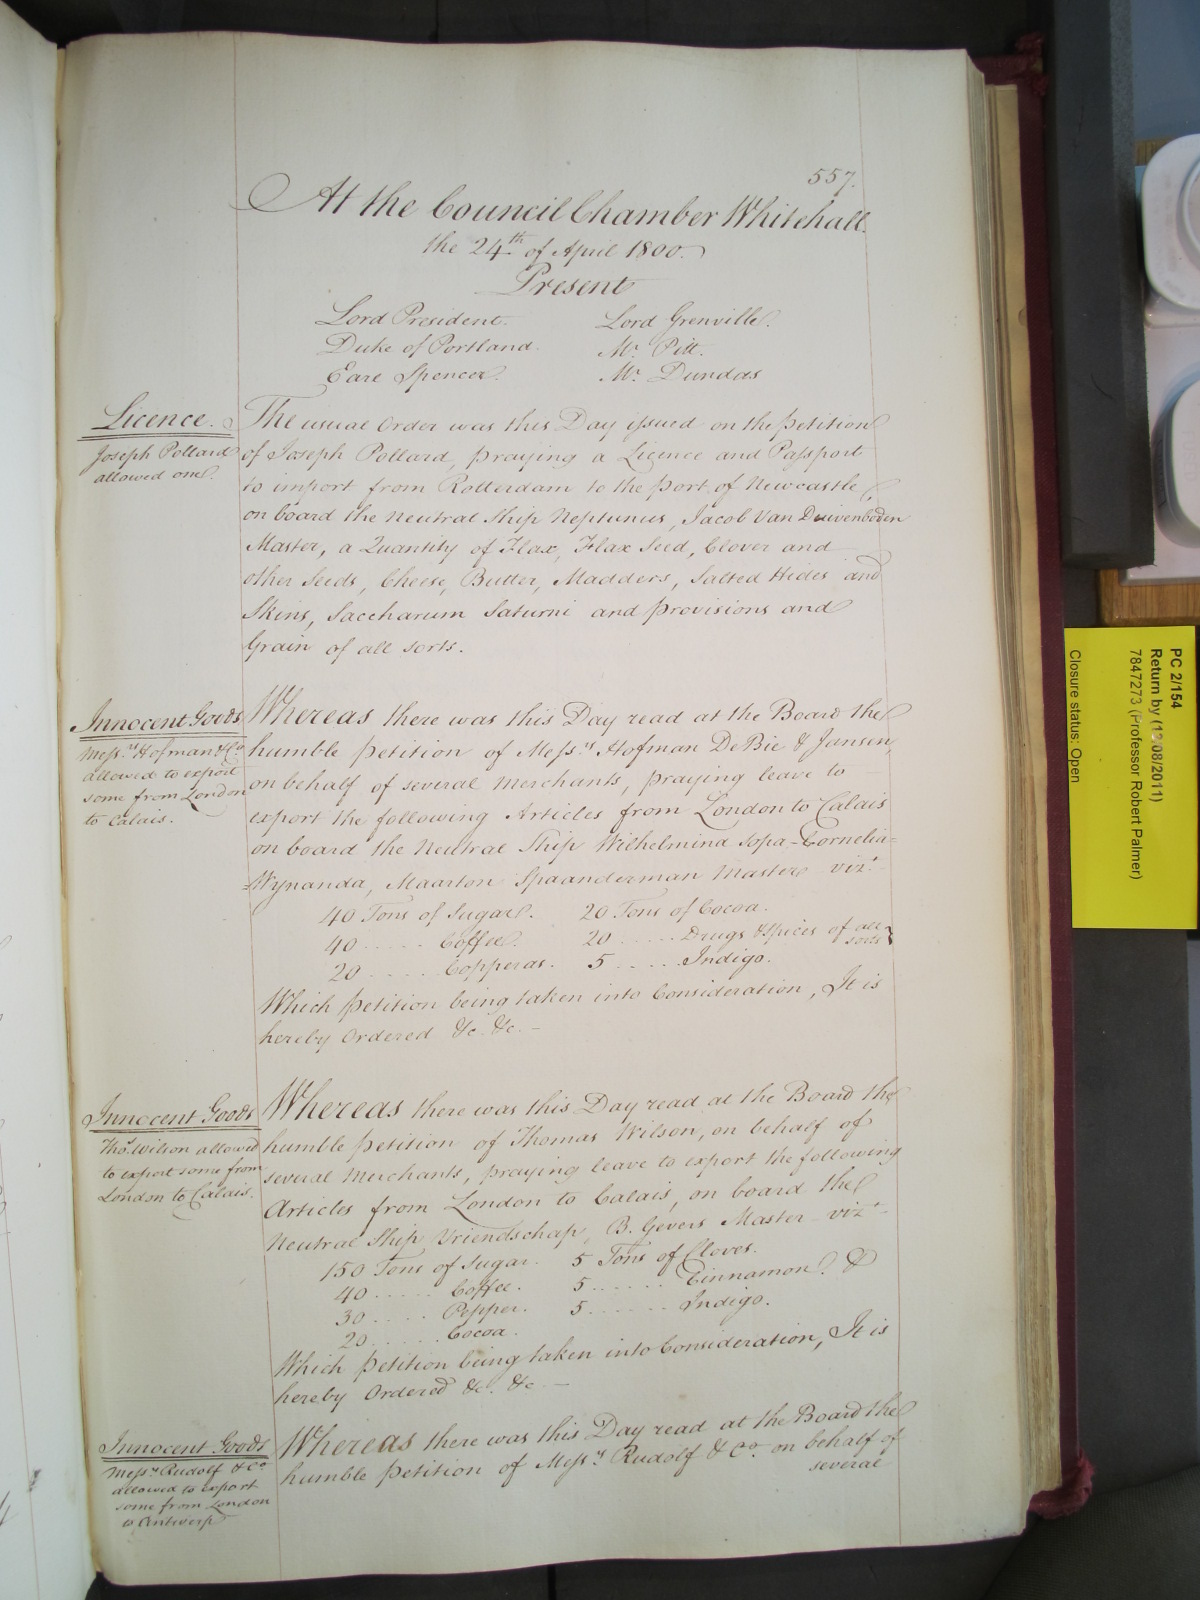 557.
At the Council Chamber Whitehall.
the 24th of April 1800.
Present
Lord President. Lord Grenville.
Duke of Portland. Mr. Pitt.
Earl Spencer. Mr. Dundas
Licence.
Joseph Pollard
allowed one.
The usual Order was this Day issued on the petition
of Joseph Pollard, praying a Licence and Passport
to import from Rotterdam to the port of Newcastle,
on board the Neutral Ship Neptunus, Jacob Van Duivenboden
Master, a Quantity of Flax, Flax Seed, Clover and
other Seeds, Cheese, Butter, Madders, Salted Hides and
Skins, Saccharum Saturni and provisions and
Grain of all sorts.
Innocent Goods
Messrs Hofman & Co.
allowed to export
some from London
to Calais.
Whereas there was this Day read at the Board the
humble petition of Messrs Hofman De Bie & Jansen,
on behalf of several Merchants, praying leave to
export the following Articles from London to Calais
on board the Neutral Ship Wilhelmina Sopa-Cornelia=
=Wynanda, Maarton Spaanderman Master vizt.
40 Tons of Sugar. 20 Tons of Cocoa.
40 ..... Coffee. 20 ..... Drugs & Spices of all sorts
20 ..... Copperas. 5 ..... Indigo.
Which petition being taken into Consideration, It is
hereby Ordered &c. &c. -
Innocent Goods
Thos. Wilson allowed
to export some from
London to Calais.
Whereas there was this Day read at the Board the
humble petition of Thomas Wilson, on behalf of
several Merchants, praying leave to export the following
Articles from London to Calais, on board the
Neutral Ship Vriendschap, B. Gevers Master - vizt -
150 Tons of Sugar. 5 Tons of Cloves.
40 ..... Coffee. 5 ...... Cinnamon. &
30 .... Pepper. 5 ...... Indigo.
20 ..... Cocoa.
Which petition being taken into Consideration, It is
hereby Ordered &c. &c -
Innocent Goods
Messrs Rudolf & Co
allowed to export
some from London
to Antwerp
Whereas there was this Day read at the Board the
humble petition of Messrs Rudolf & Co. on behalf of
several
PC 2/154
Return by (12/08/2011)
7847273 (Professor Robert Palmer)
Closure status: Open